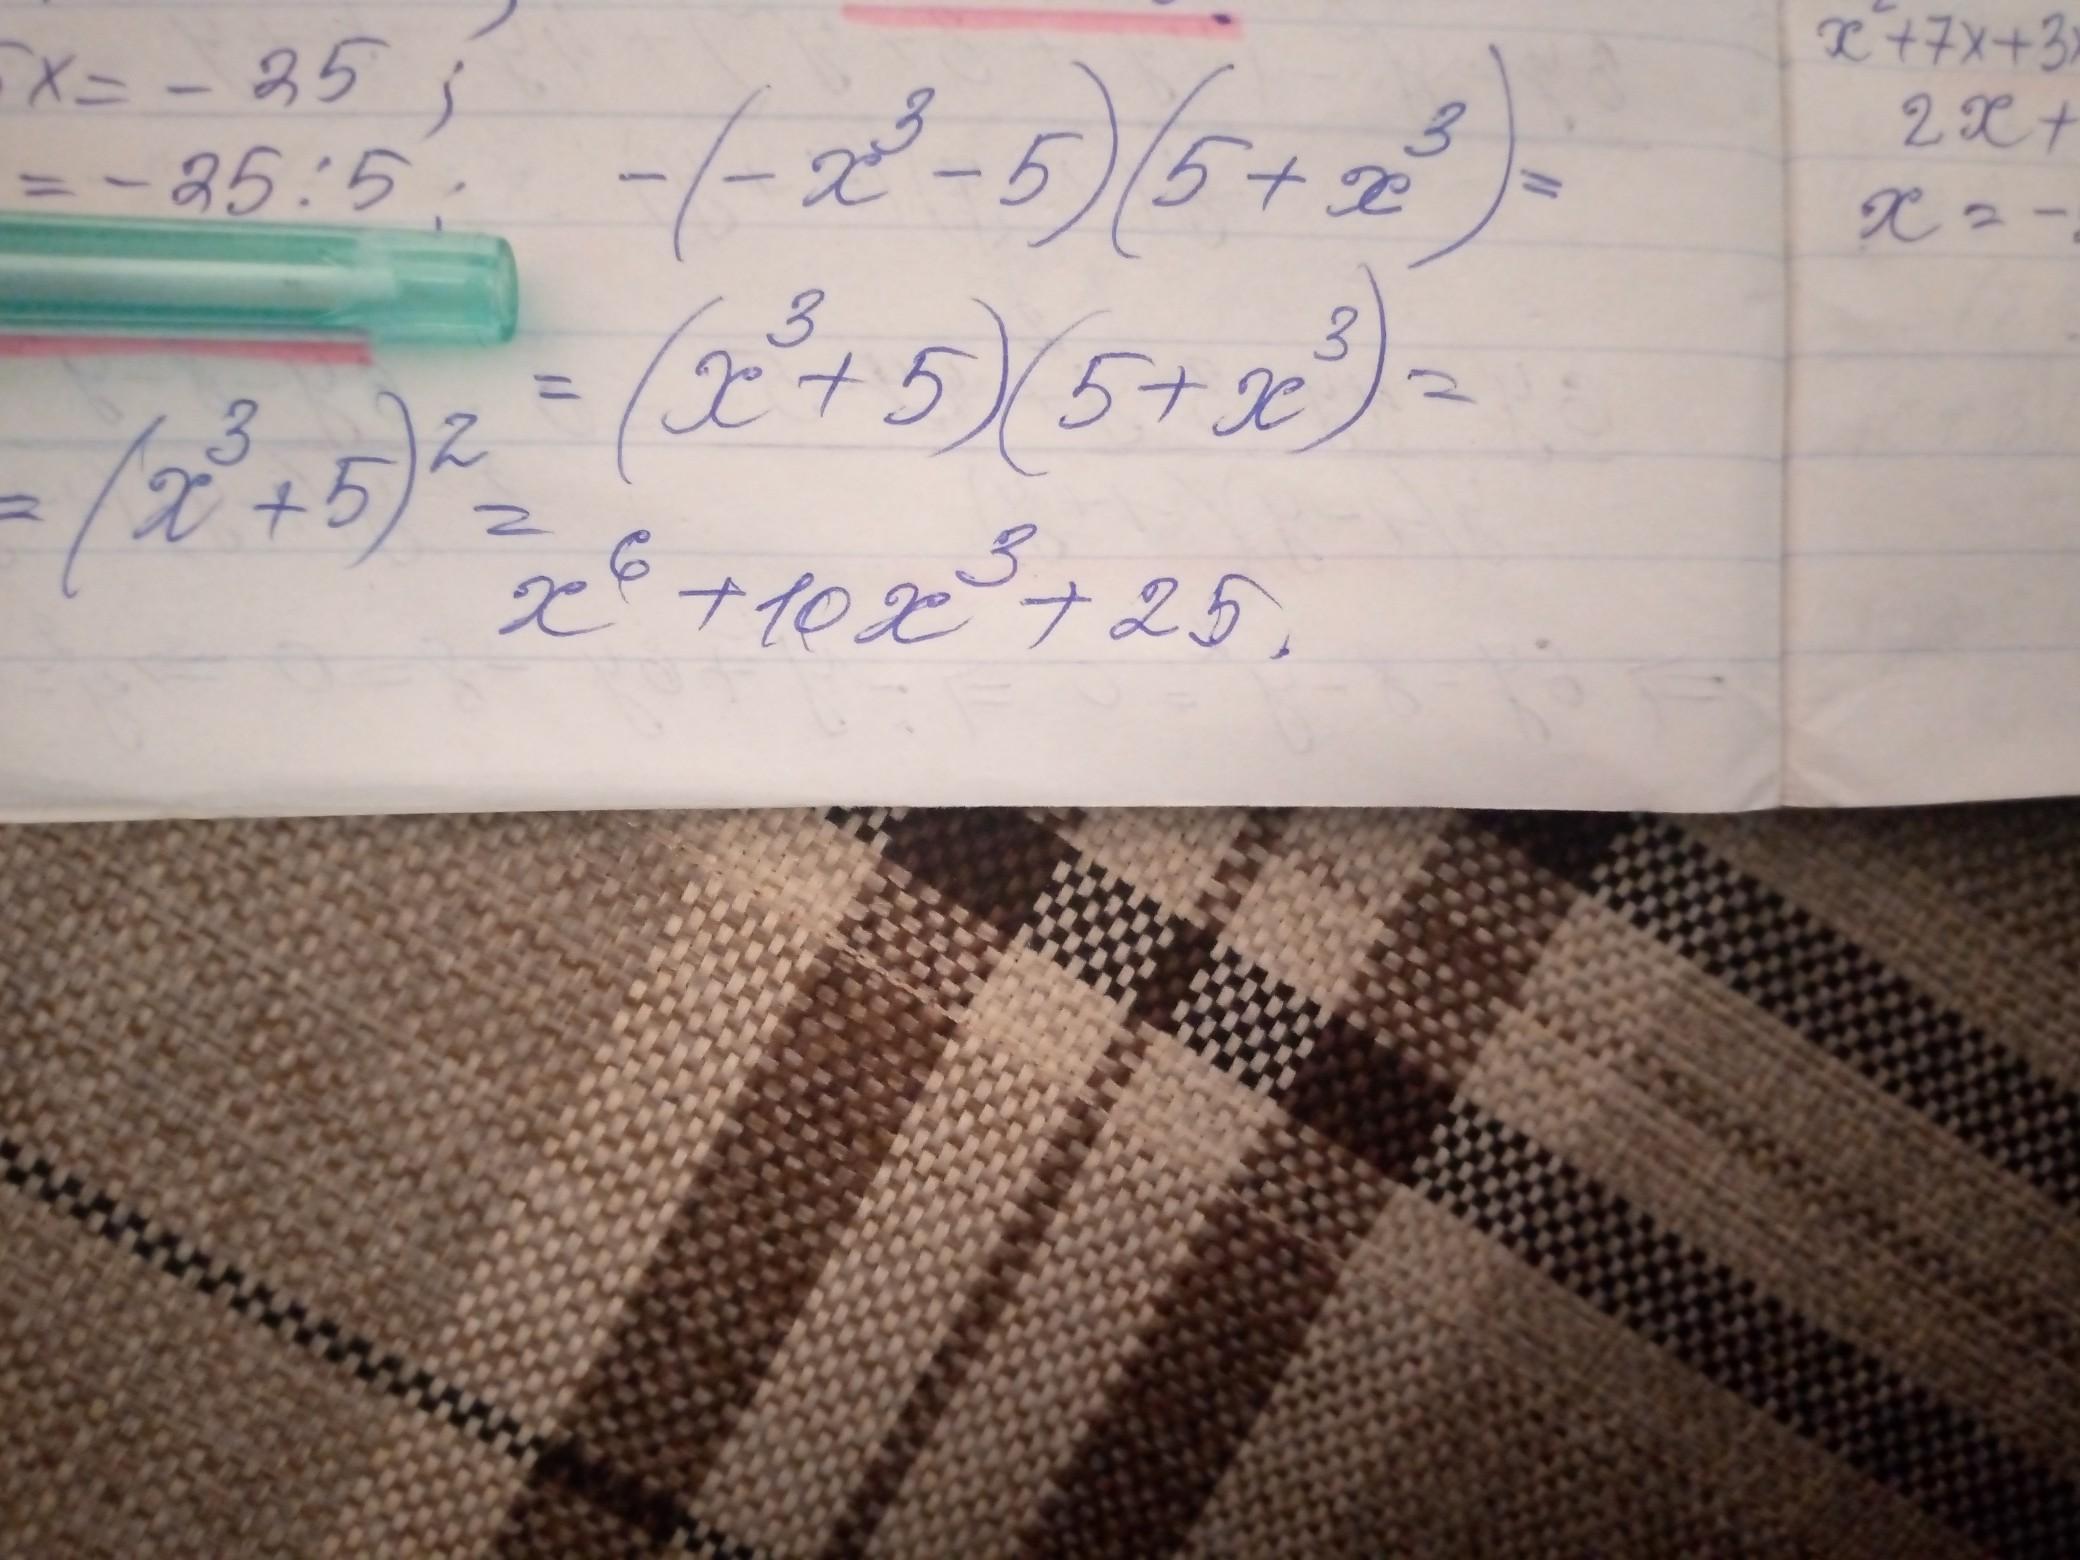 5x = - 25 ;
= - 25 : 5 ;
-(-x³ - 5)(5 + x³) =
= (x³ + 5)(5 + x³) =
= (x³ + 5)² =
x⁶ + 10x³ + 25.
x² + 7x + 3x
2x +
x = -